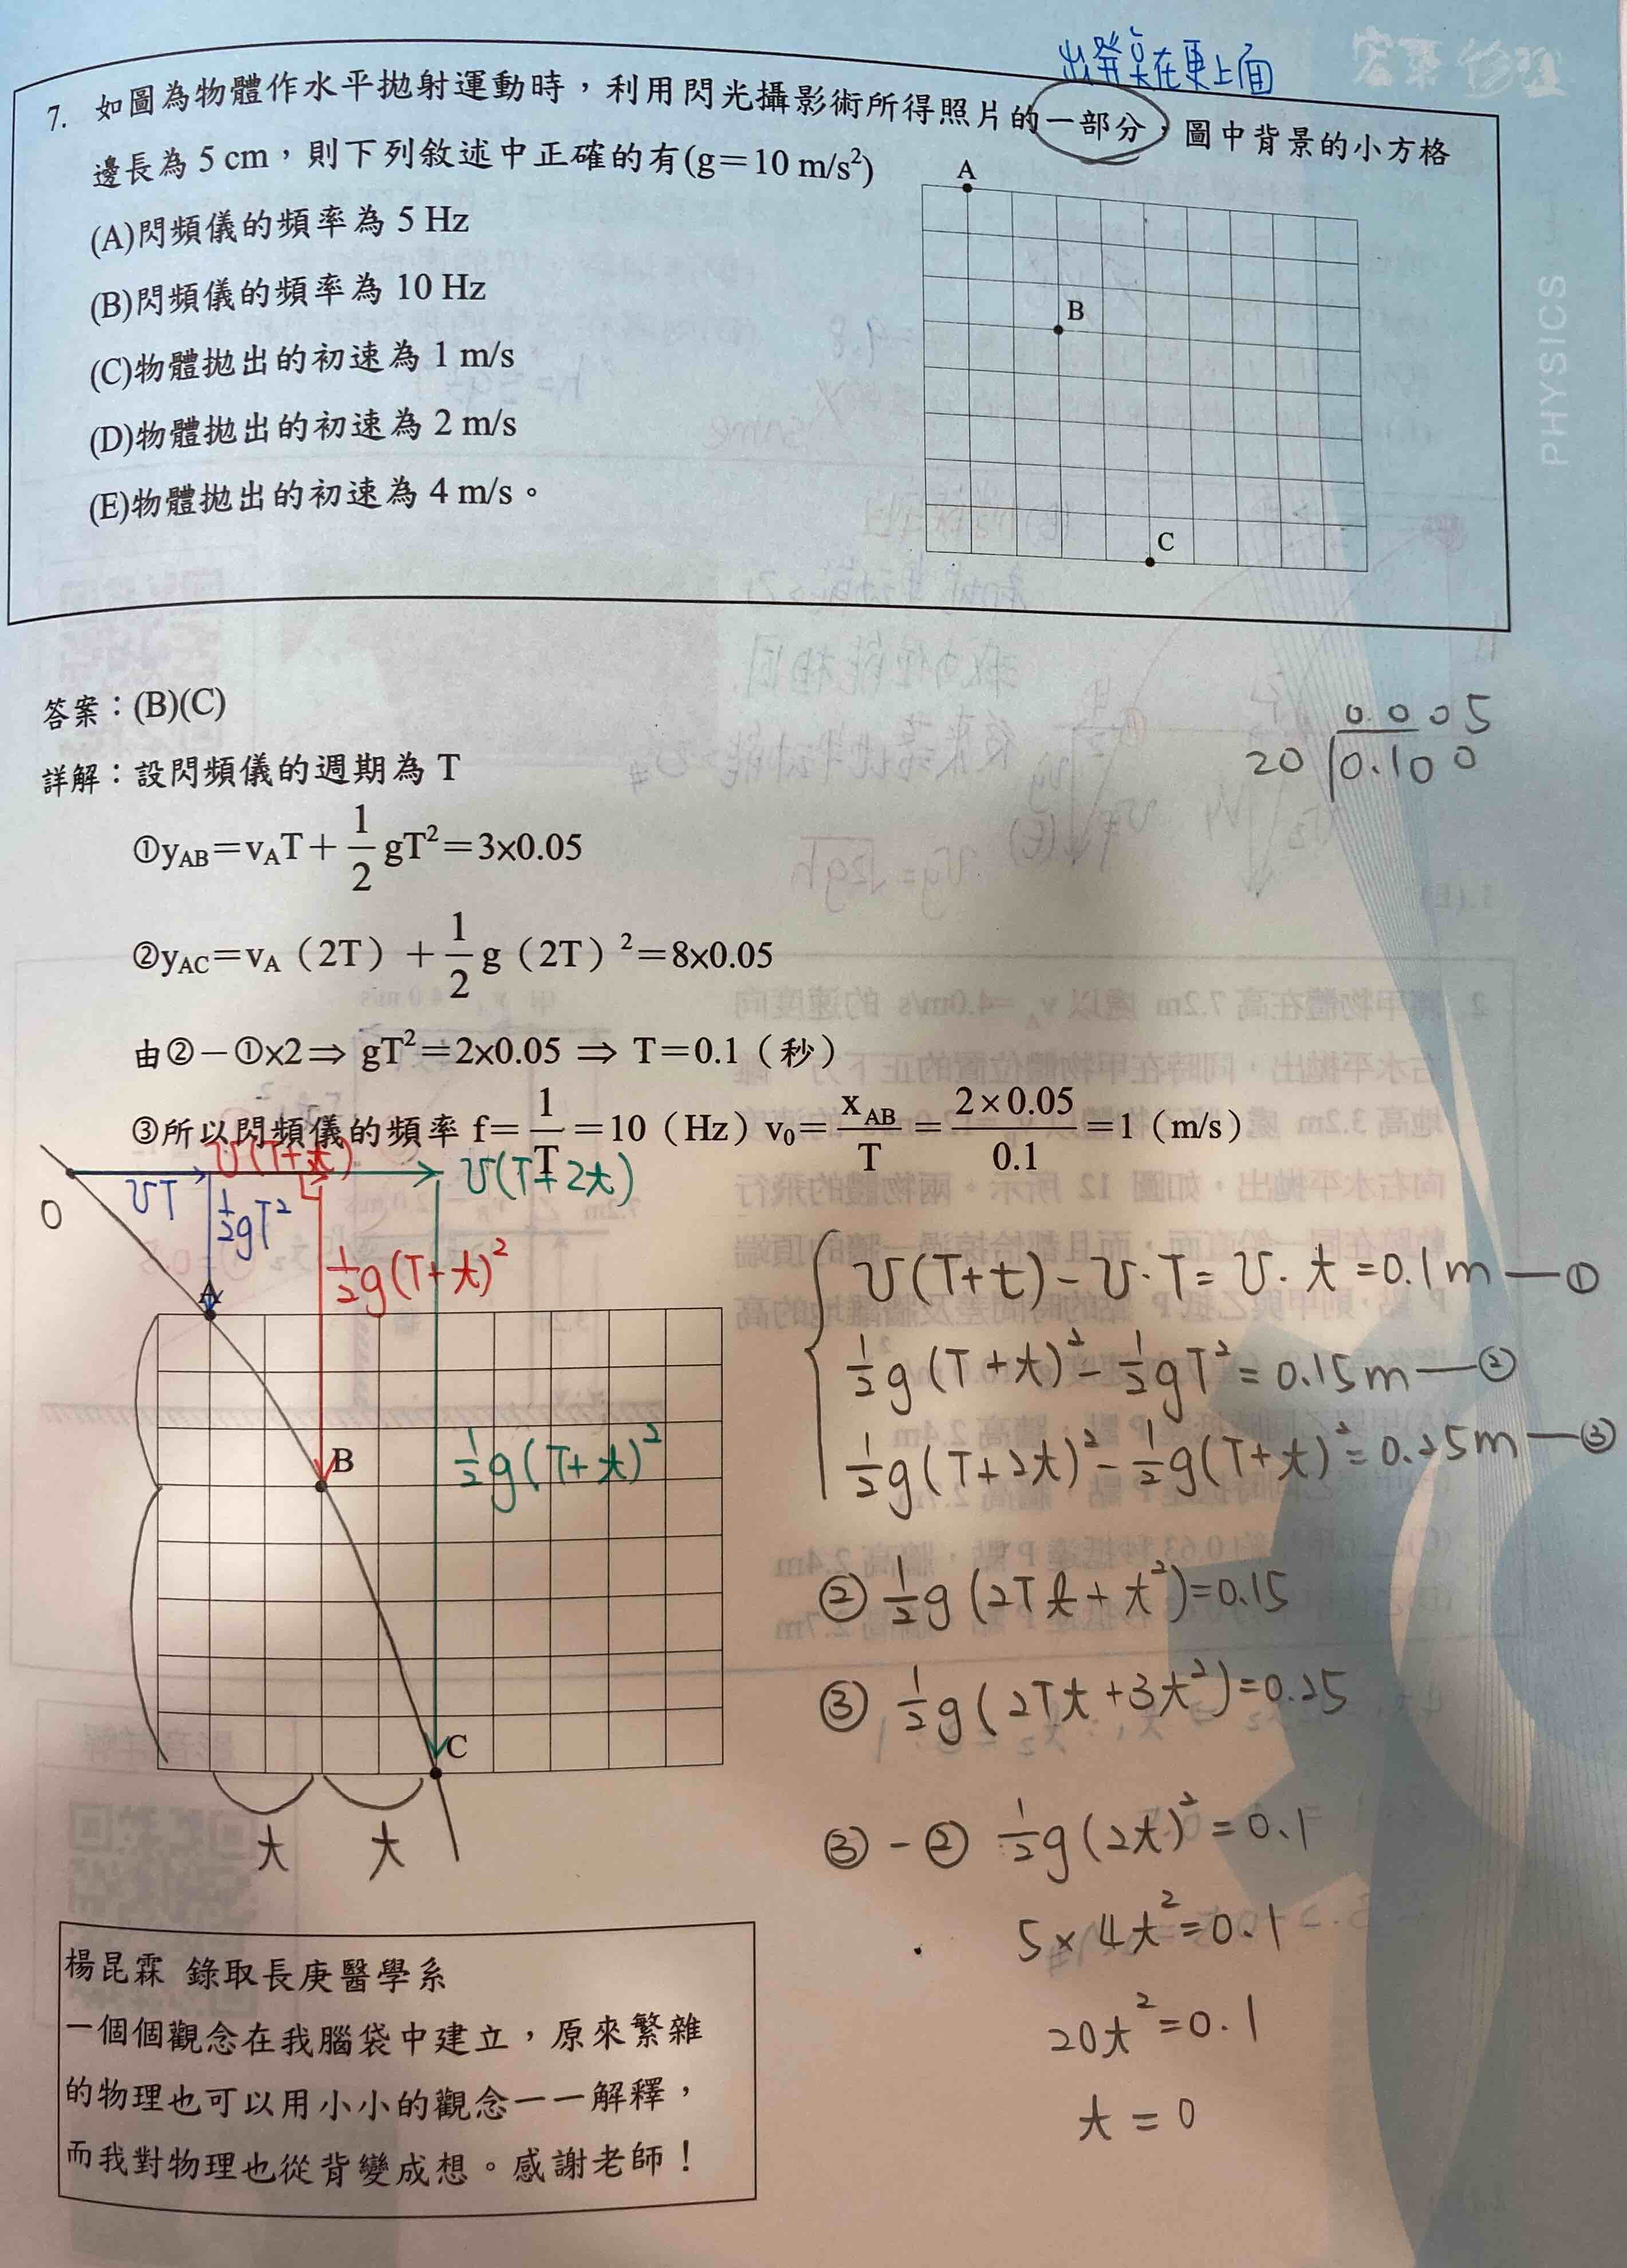 出發点在更上面
7. 如圖為物體作水平拋射運動時，利用閃光攝影術所得照片的一部分，圖中背景的小方格
邊長為 5 cm，則下列敘述中正確的有(g＝10 m/s²)
(A)閃頻儀的頻率為 5 Hz
(B)閃頻儀的頻率為 10 Hz
(C)物體拋出的初速為 1 m/s
(D)物體拋出的初速為 2 m/s
(E)物體拋出的初速為 4 m/s。
A
B
C
PHYSICS
答案：(B)(C)
詳解：設閃頻儀的週期為 T
①yAB＝vAT＋1/2 gT²＝3×0.05
②yAC＝vA（2T）＋1/2 g（2T）²＝8×0.05
由②－①×2⇒ gT²＝2×0.05 ⇒ T＝0.1（秒）
③所以閃頻儀的頻率 f＝1/T＝10（Hz）v₀＝xAB/T＝2×0.05/0.1＝1（m/s）
0.005
20 0.100
O
υT
υ(T+t)
υ(T+2t)
1/2gT²
1/2g(T+t)²
1/2g(T+t)²
A
B
C
t t
υ(T+t)－υ·T＝υ·t＝0.1m—①
1/2g(T+t)²－1/2gT²＝0.15m—②
1/2g(T+2t)²－1/2g(T+t)²＝0.25m—③
② 1/2g(2Tt+t²)=0.15
③ 1/2g(2Tt+3t²)=0.25
③－② 1/2g(2t)²=0.1
5×4t²=0.1
20t²=0.1
t=0
楊昆霖 錄取長庚醫學系
一個個觀念在我腦袋中建立，原來繁雜
的物理也可以用小小的觀念一一解釋，
而我對物理也從背變成想。感謝老師！